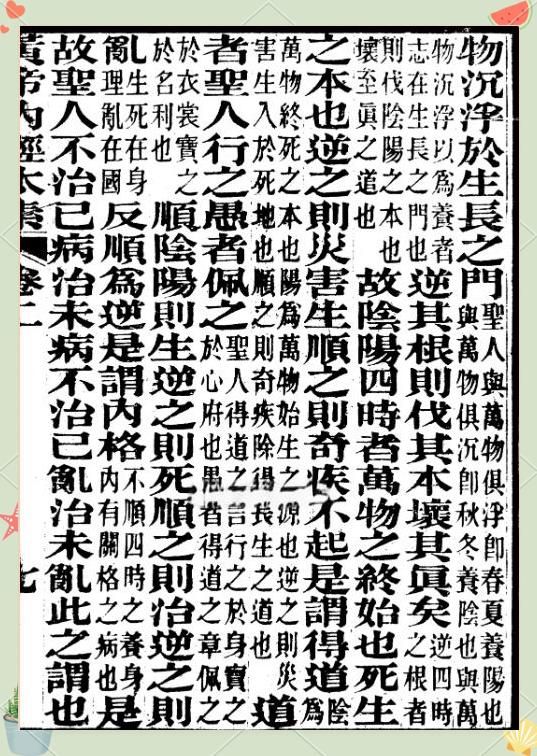 物沉浮於生長之門聖人與萬物俱浮即春夏養陽也與萬物俱沉即秋冬養陰也與萬
物沉浮以爲養者志在生長之門也逆其根則伐其本壞其眞矣逆四時之根者
則伐陰陽之本也壞至眞之道也故陰陽四時者萬物之終始也死生
之本也逆之則災害生順之則奇疾不起是謂得道陰爲
萬物終死之本也陽爲萬物始生之源也逆之則災害生入於死地也順之則奇疾除得長生之道也道
者聖人行之愚者佩之聖人得道之言行之於身寶之於心府也愚者得道之章佩之
於衣裳寶之於名利也順陰陽則生逆之則死順之則治逆之則
亂生死在身理亂在國反順爲逆是謂內格不順四時之養身內有關格之病也是
故聖人不治已病治未病不治已亂治未亂此之謂也
黃帝內經太素 卷二 七